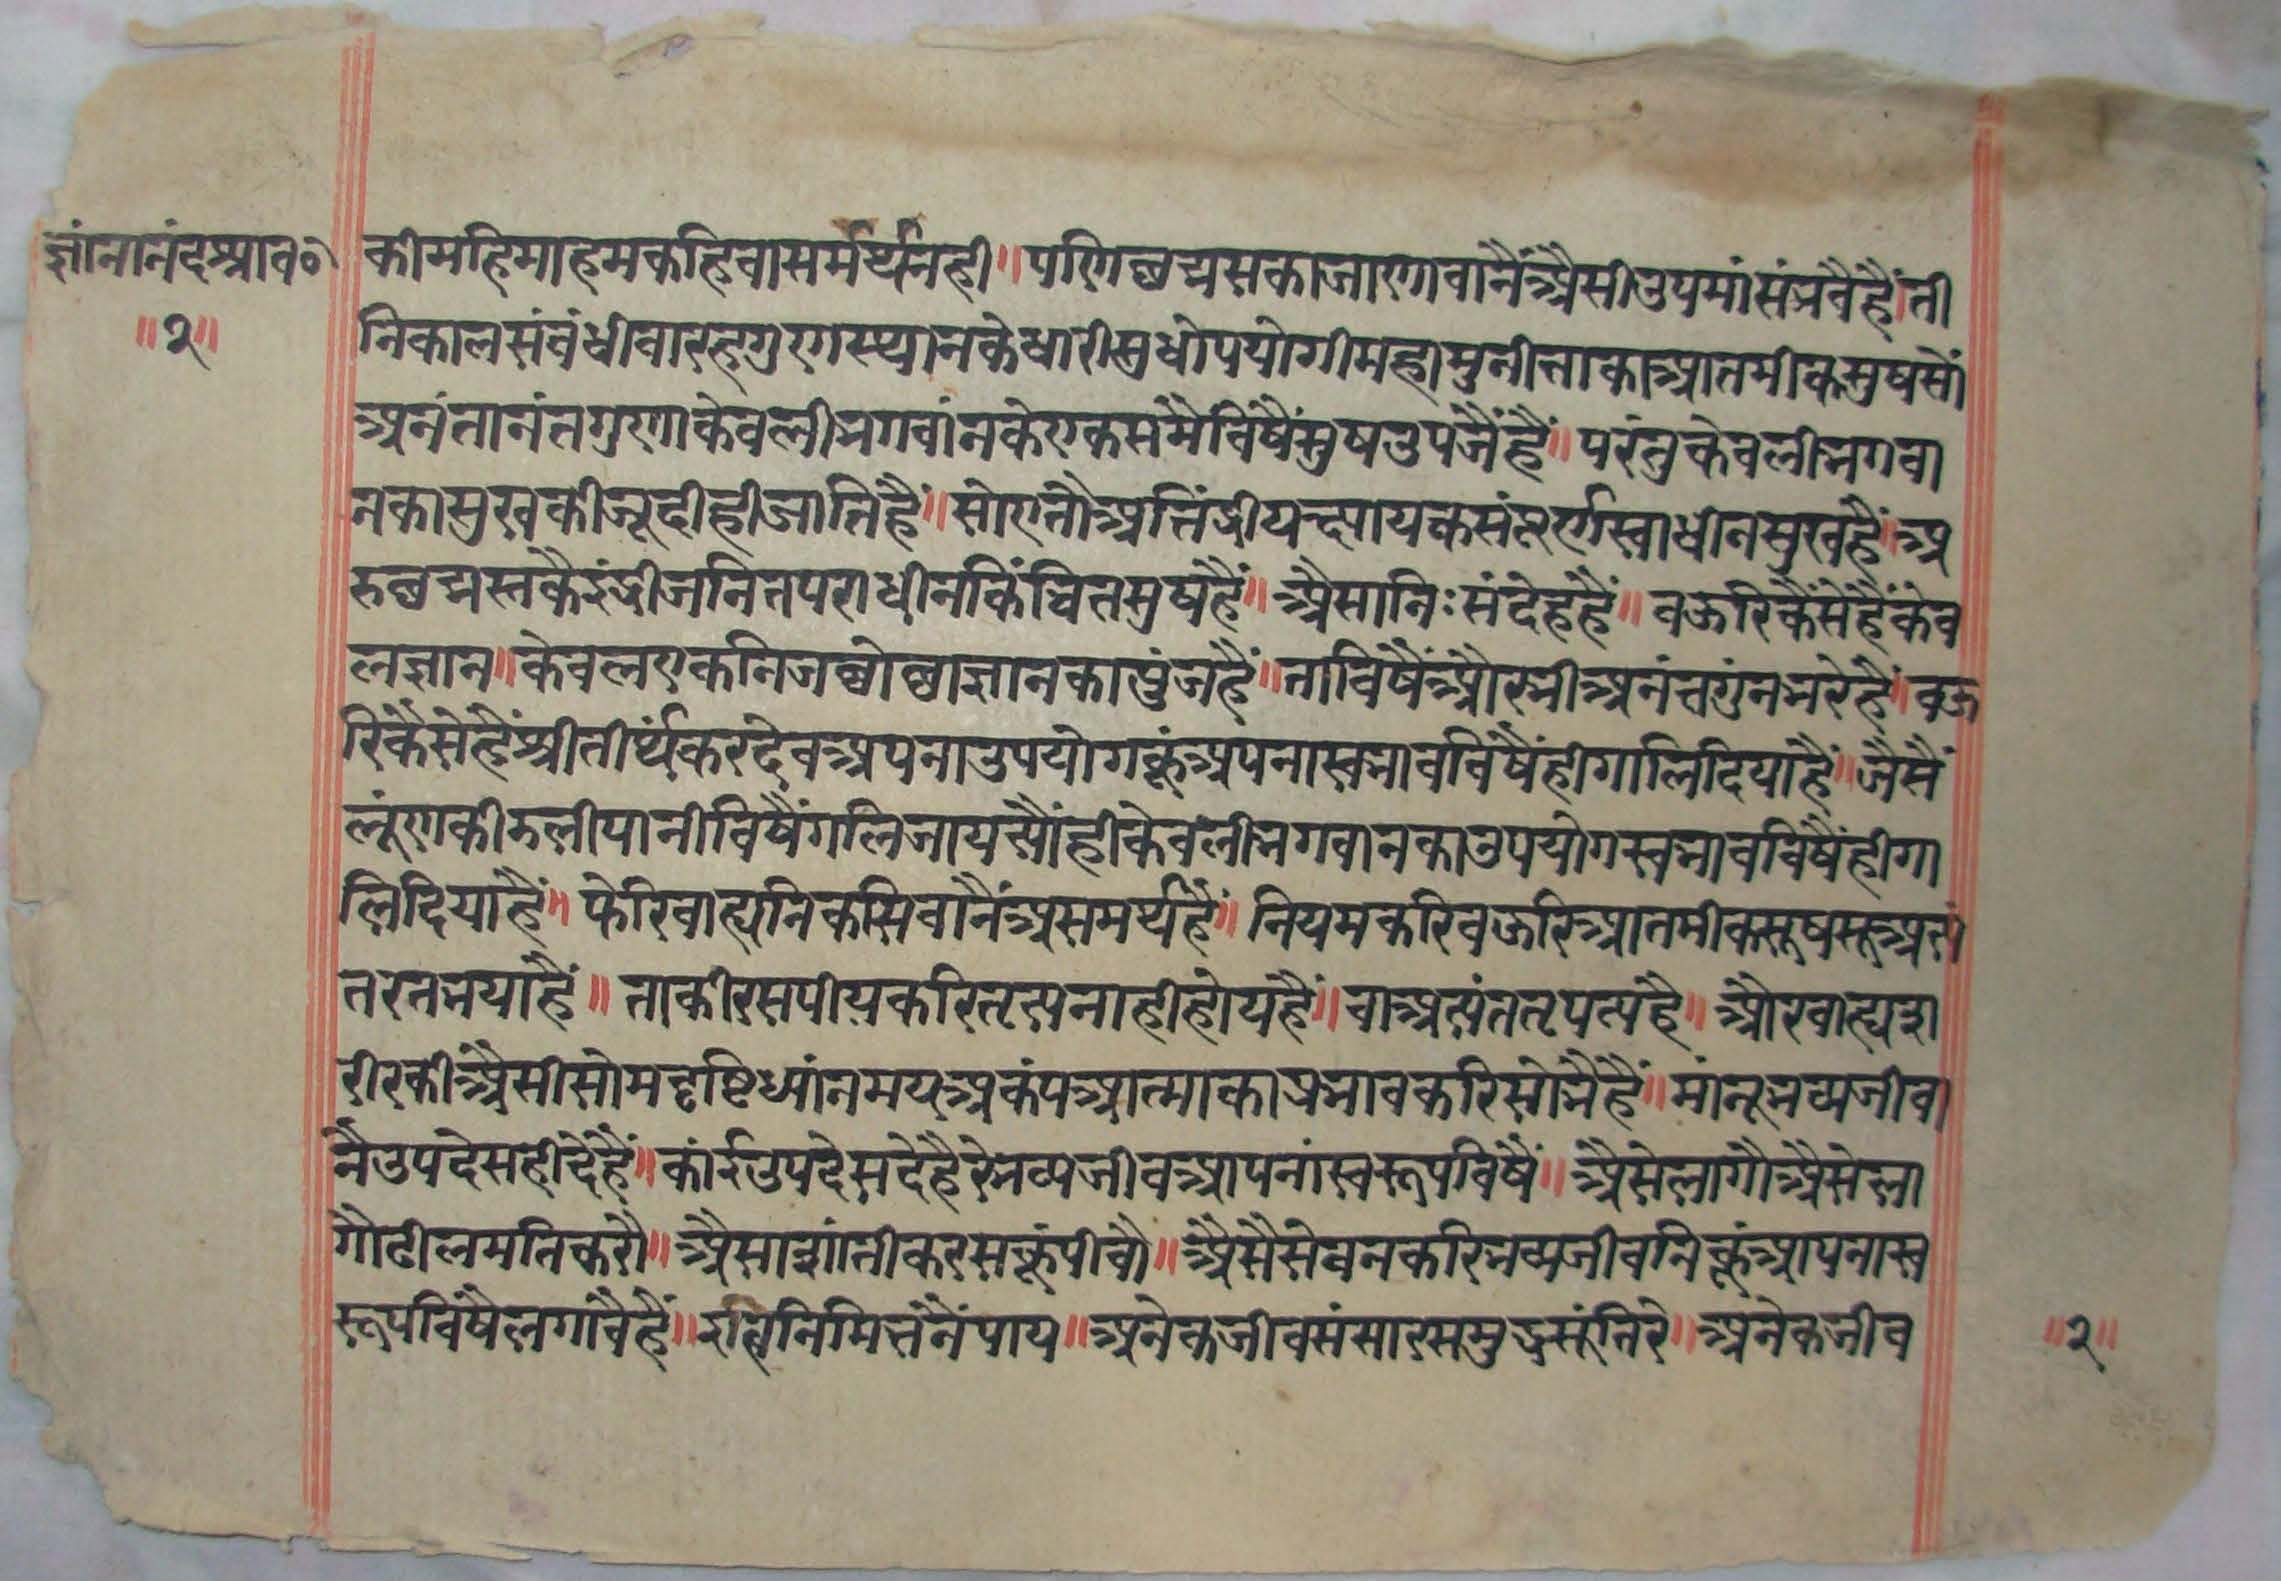 ज्ञांनानंदश्राव०
॥२॥
कीमहिमाहमकहिवासमर्मर्थनही॥ पणिछद्मसकाजाणवानैंअैसीउपमांसंभवैहैं॥ती
निकालसंबंधीबारहगुणस्थानकेधारीसुधोपयोगीमहामुनीत्ताकाआतमीकसुषसौं
अनंतानंतगुणाकेवलीभगवांनकेएकसमैविषैंसुषउपजैंहैं॥ परंतुकेवलीभगवा
नकासुखकीजूदीहीजातिहैं॥ सोएतौअतिंद्रीयक्ष्यायकसंपूर्णस्वाधीनसुखहैं॥अ
रुछद्मस्तकैइंद्रीजनितपराधीनकिंचितसुषहैं॥ अैसानिःसंदेहहैं॥ बऊरिकैंसेहैंकेव
लज्ञान॥केवलएकनिजछोछाज्ञानकापुंजहैं॥ ताविषैंऔरभीअनंत्तगुंनभरेहैं॥ बऊ
रिकैसेहैंश्रीतीर्थंकरदेवअपनाउपयोगकूंअपनास्वभावविषैंहीगालिदियाहैं॥ जैसैं
लूंणकीडलीपानीविषैंगलिजायत्यौंहीकेवलीभगवानकाउपयोगस्वभावविषैंहीगा
लिदियाहैं॥ फेरिबाह्यनिकसिवानैंअसमर्थहैं॥ नियमकरिबऊरिआतमीकसूषसूअत्यं
तरतभयाहैं॥ ताकीरसपीयकरितृत्पनाहीहोयहैं॥ वाअत्यंततृपत्यहै॥ औरबाह्यश
रीरकीअैसीसोमदृष्टिध्यांनमयअकंपआत्माकाप्रभावकरिसोभैहैं॥ मांनूभव्यजीवा
नैउपदेसहीदेहैं॥ कांईउपदेसदेहैरेभव्यजीवआपनांस्वरूपविषैं॥ अैसेलागौअैसेला
गौढीलमतिकरौ॥ अैसाशांतीकरसकूंपीवौ॥ अैसैसेवनकरिभव्यजीवनिकूंआपनास्व
रूपविंषैलगांवैहैं॥ इहनिमित्तनैंपाय॥ अनेकजीवसंसारसमुद्रसूंतिरे॥ अनेकजीव
॥२॥